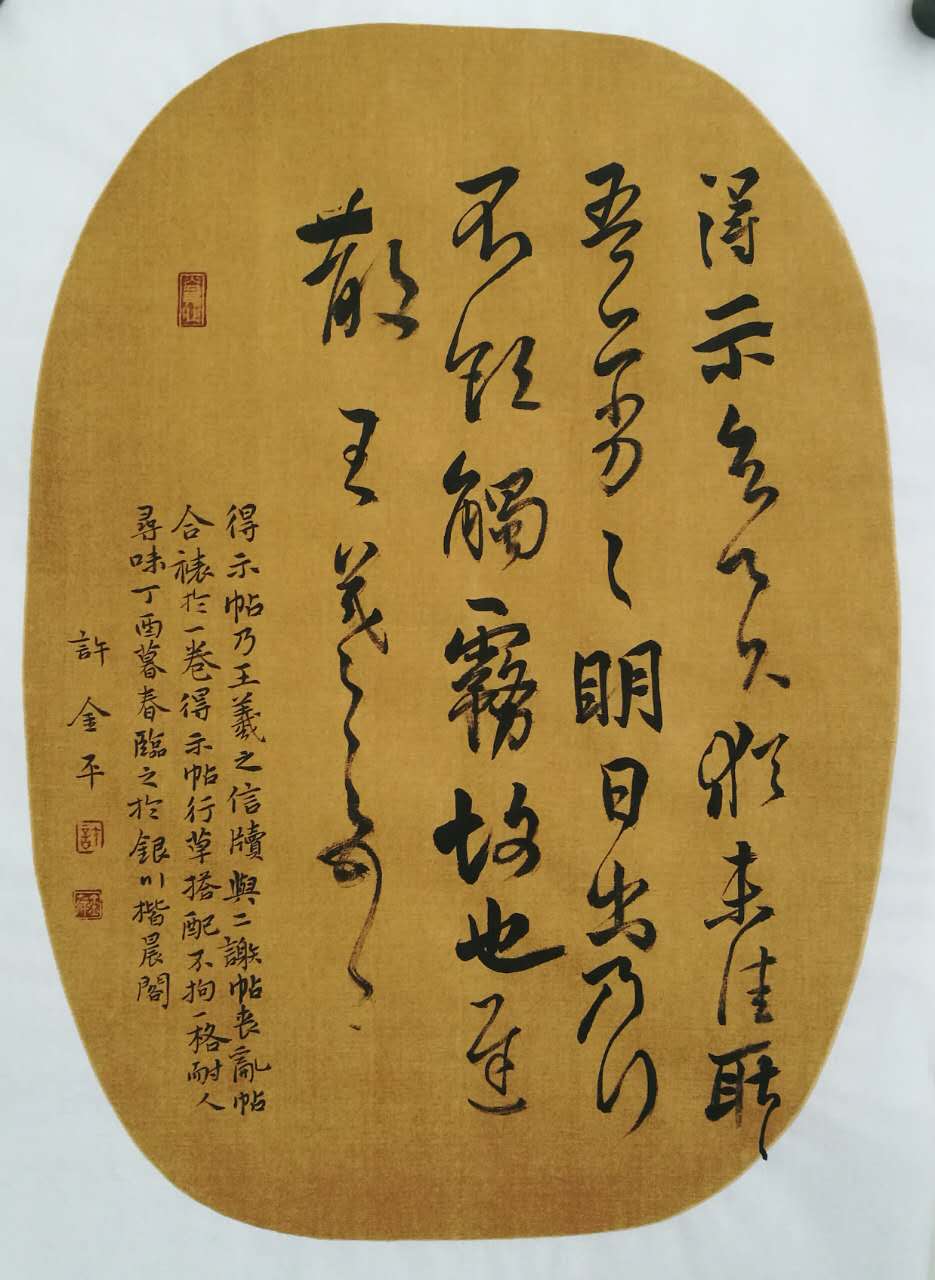 得示知足下猶未佳耿〻
吾亦劣〻明日出乃行
不欲觸霧故也遲
散王羲之頓首
得示帖乃王羲之信牘與二謝帖喪亂帖
合裱於一卷得示帖行草搭配不拘一格耐人
尋味丁酉暮春臨之於銀川楷晨閣
許金平
許